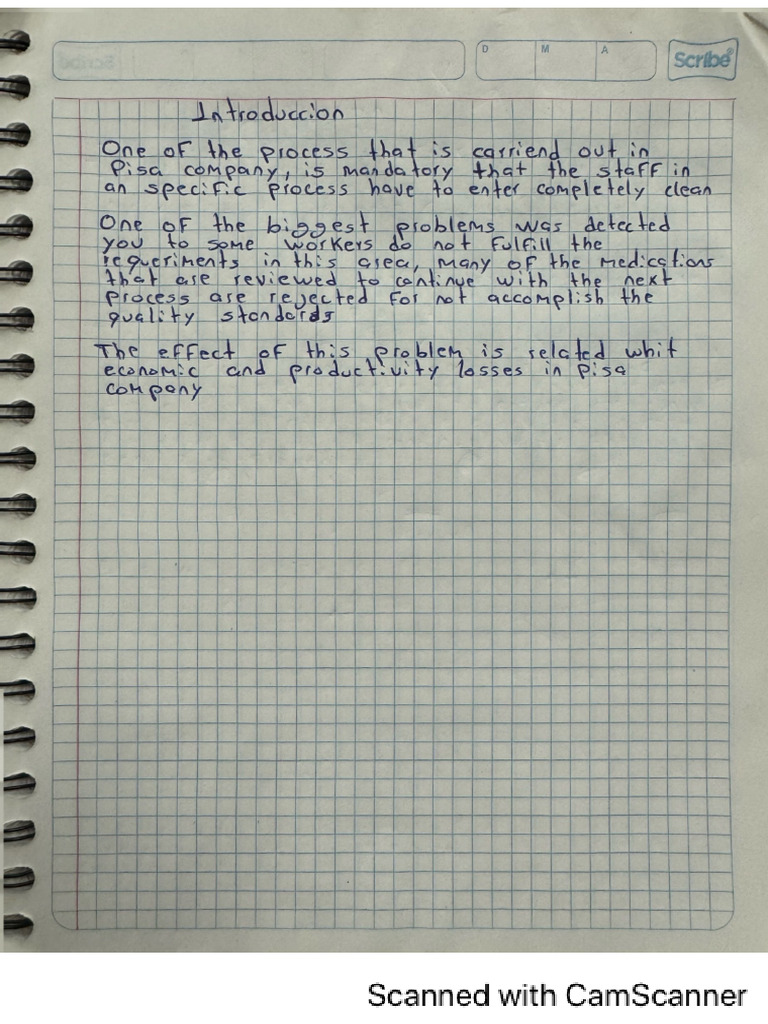 D M A
Scribe
Introduccion
One of the process that is carriend out in
Pisa company, is mandatory that the staff in
an specific process have to enter completely clean
One of the biggest problems was detected
you to some workers do not fulfill the
requeriments in this area, many of the medications
that are reviewed to continue with the next
process are rejected for not accomplish the
quality standards
The effect of this problem is related whit
economic and productivity losses in Pisa
company
Scanned with CamScanner